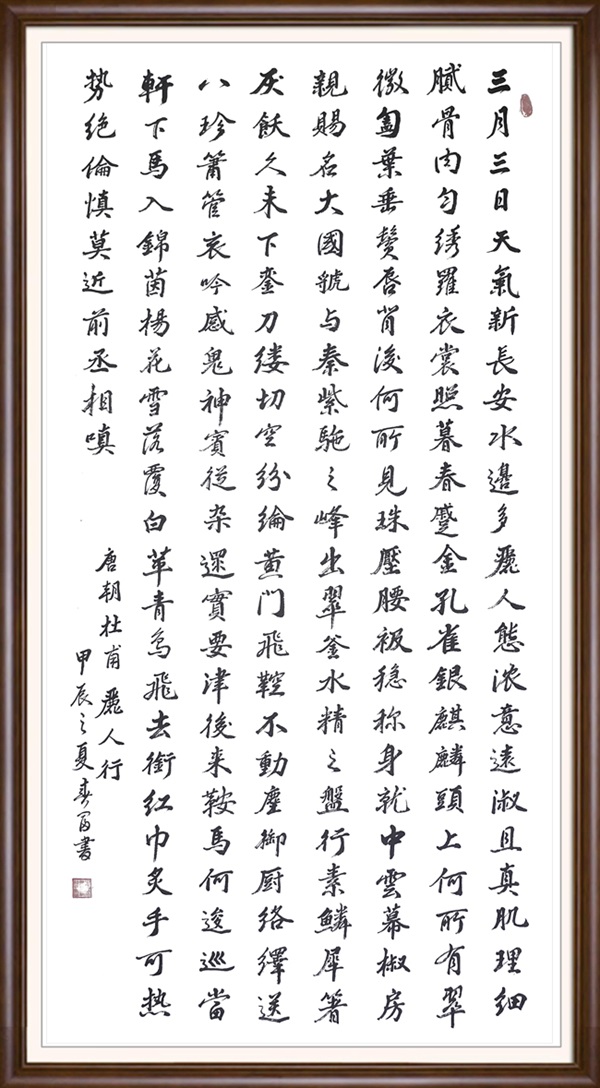 三月三日天氣新長安水邊多麗人態浓意遠淑且真肌理细
腻骨肉匀绣羅衣裳照暮春蹙金孔雀銀麒麟頭上何所有翠
微匎葉垂鬢唇背後何所見珠壓腰衱稳称身就中雲幕椒房
親賜名大國虢与秦紫駞之峰出翠釜水精之盤行素鱗犀箸
厌飫久未下銮刀缕切空纷綸黄门飛鞚不動塵御厨络繹送
八珍箫管哀吟感鬼神賓從杂遝實要津後来鞍馬何逡巡當
軒下馬入錦茵楊花雪落覆白苹青鸟飛去銜红巾炙手可热
势绝倫慎莫近前丞相嗔
唐朝杜甫 麗人行
甲辰之夏春富書